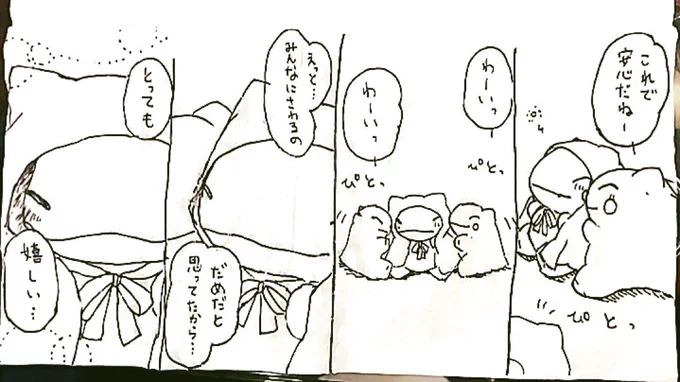 これで
安心だねー
ぴとっ
わーいっ
ぴとっ
わーいっ
ぴとっ
えっと…
みんなにさわるの
だめだと
思ってたから…
とっても
嬉しい…